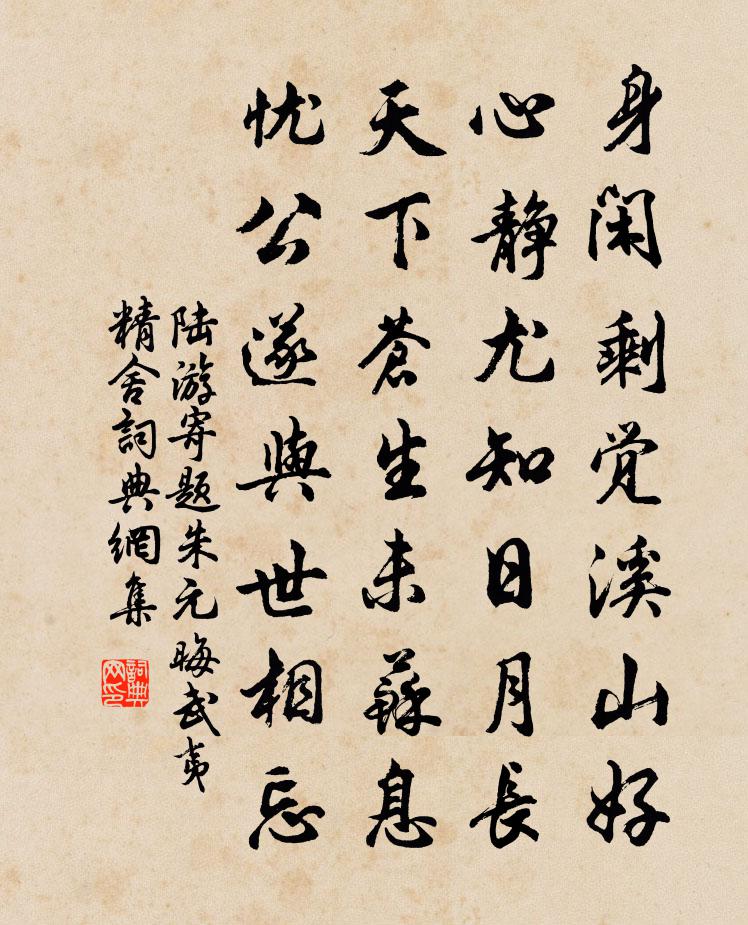 身閑剩觉溪山好
心静尤知日月長
天下蒼生未蘇息
忧公遂與世相忘
陆游寄题朱元晦武夷
精舍詞典網集
詞典
网印